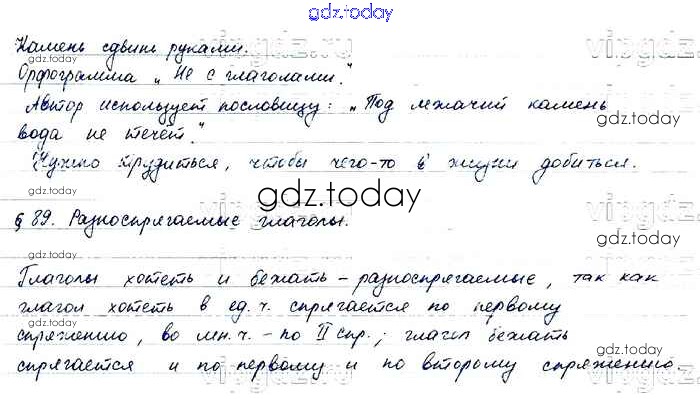 gdz.today
Камень сдвинь руками.
Орфограмма „Не с глаголами".
Автор использует пословицу: „Под лежачий камень
gdz.today
вода не течёт."
Нужно трудиться, чтобы чего-то в жизни добиться.
gdz.today
§ 89. Разноспрягаемые глаголы.
gdz.today
Глаголы хотеть и бежать – разноспрягаемые, так как
глагол хотеть в ед. ч. спрягается по первому
gdz.today
спряжению, во мн. ч. – по II спр.; глагол бежать
gdz.today
спрягается и по первому и по второму спряжению.